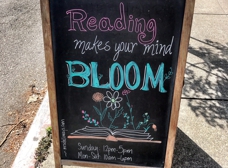 Reading
makes your mind
BLOOM
Sunday 12pm-5pm
Mon-Sat 10am-6pm